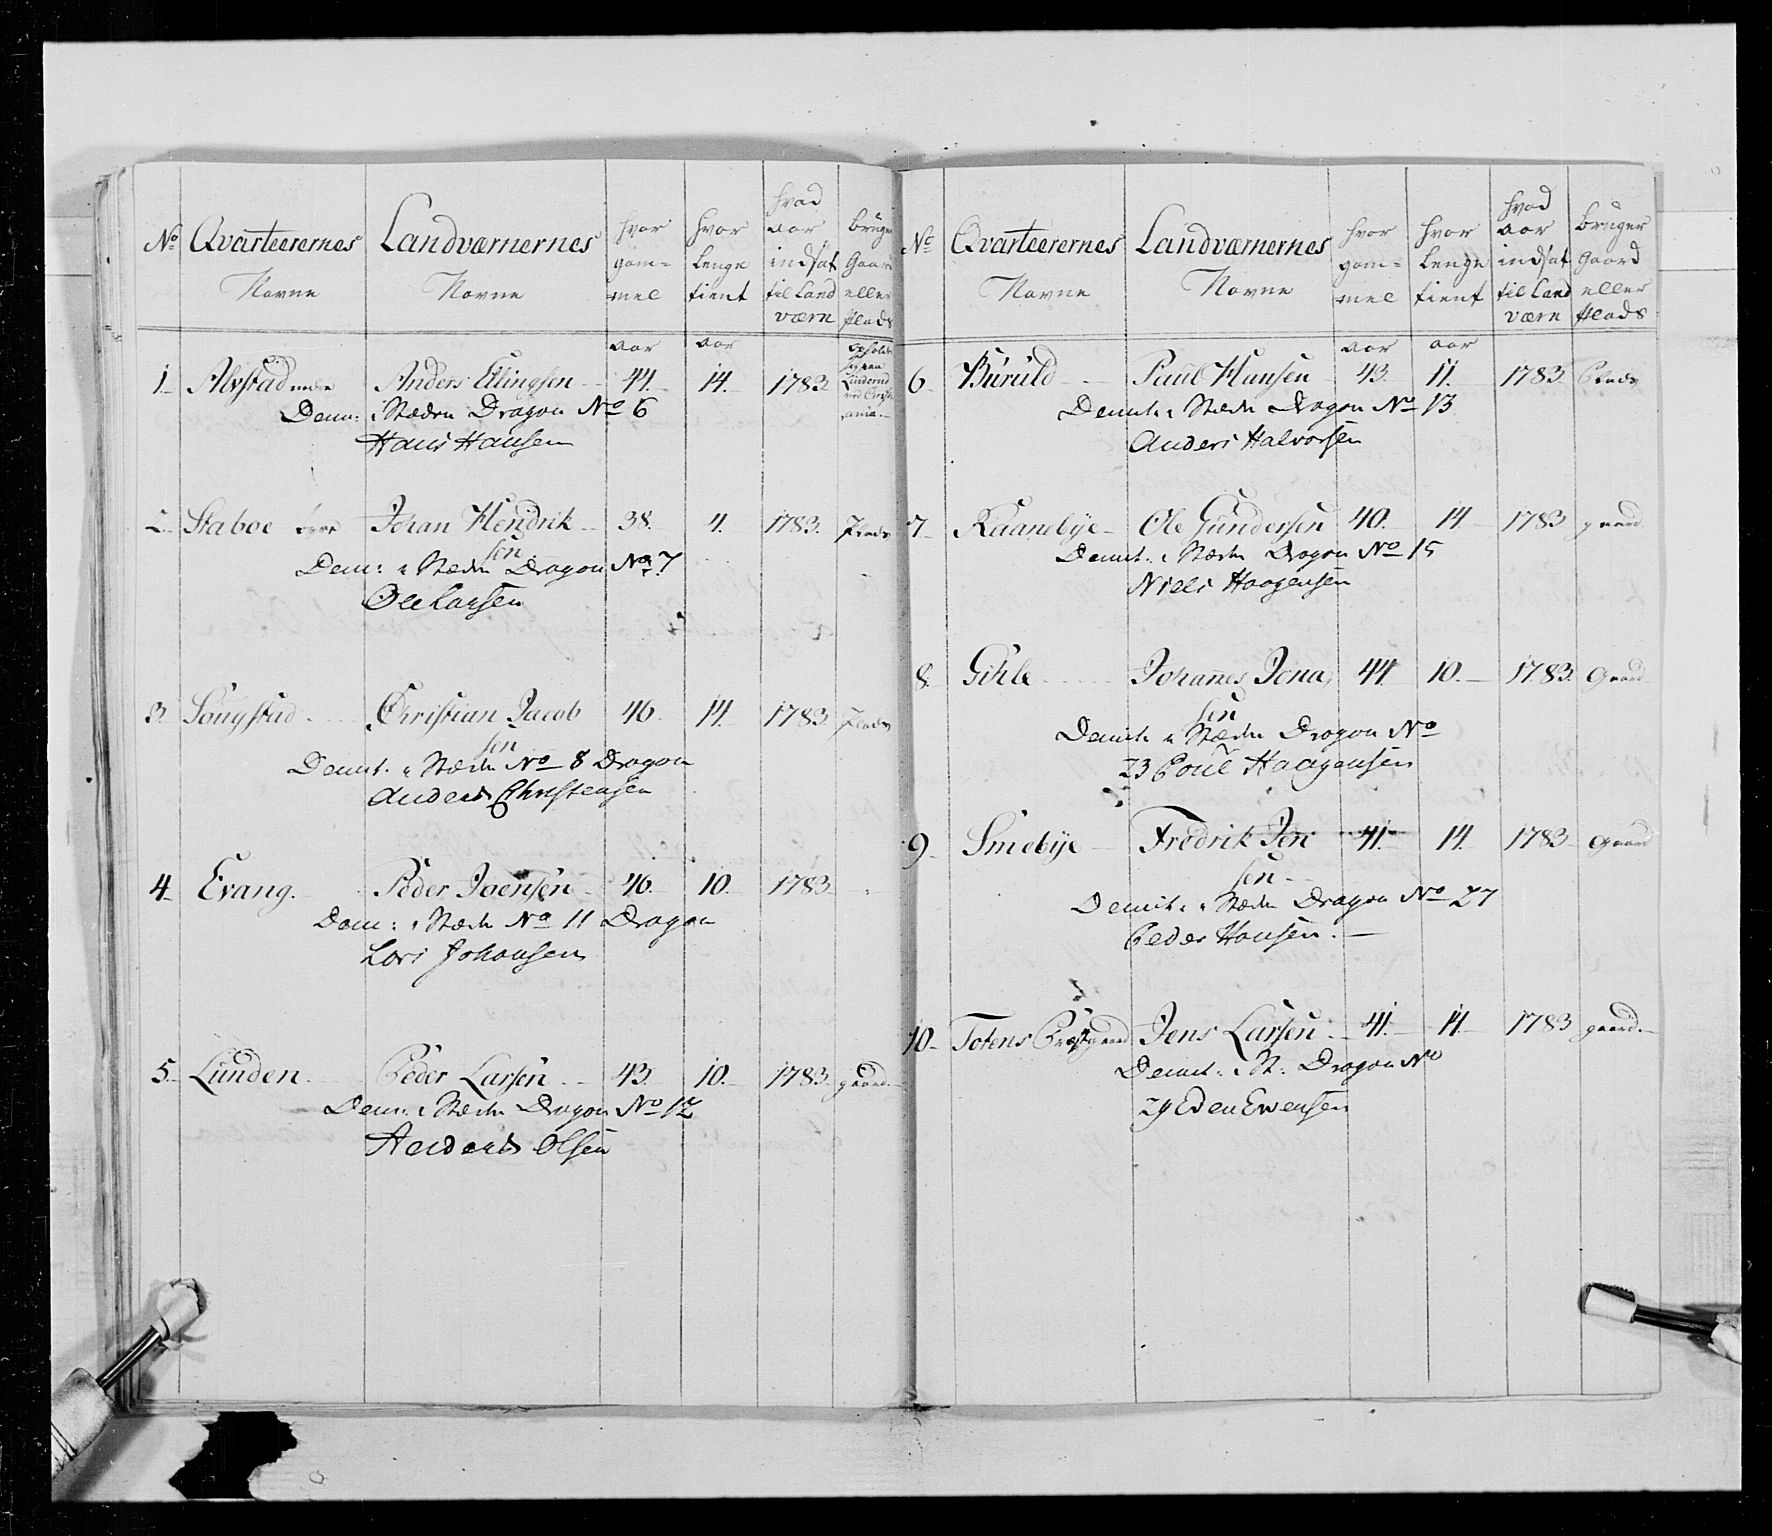 No Qvarteerernes Navne
Landværnernes Navne
hvor gam=mel
hvor lenge tient
hvad aar indsat til Land værn
bruger Gaard eller Plads
aar aar
1. Alfstad nedre Anders Ellingsen 44. 14. 1783
Dem: i Stæden Dragon No 6
Hans Hansen
2. Staboe øvre Johan Hendrik 38. 4. 1783. Plads
sen
Dem: i Stæden Dragon No 7
Ole Larsen
3. Sougstad Christian Jacob 46. 14. 1783 Plads
sen
Demt. i Stæden No 8 Dragon
Anders Christensen
4. Evang. Peder Joensen 46. 10. 1783
Dem: i Stæden No 11 Dragon
Lars Johansen
5. Lunden Peder Larsen 43. 10. 1783. gaard
Dem: i Stæden Dragon No 12
Anders Olsen
No Qvarteerernes Navne
Landværnernes Navne
hvor gam=mel
hvor lenge tient
hvad aar indsat til Land værn
bruger Gaard eller Plads
aar aar
6. Buruld Paul Hansen 43. 11. 1783. Plads
Demt. i Stæden Dragon No 13
Anders Halvorsen
7. Raanebye Ole Gundersen 40. 14. 1783 gaard
Demt. i Stæden Dragon No 15
Niels Haagensen
8. Gihle Johannes Jona 44 10. 1783. Gaard
sen
Demt. i Stæden Dragon No
23 Poul Haagensen
9. Smebye Fredrik Jen 41. 14. 1783 Gaard
sen
Demit. i Stæden Dragon No 27
Peder Hansen.
10. Totens Præstgaard Jens Larsen 41. 14. 1783 gaard.
Demt. i St: Dragon No
29 Eden Evensen